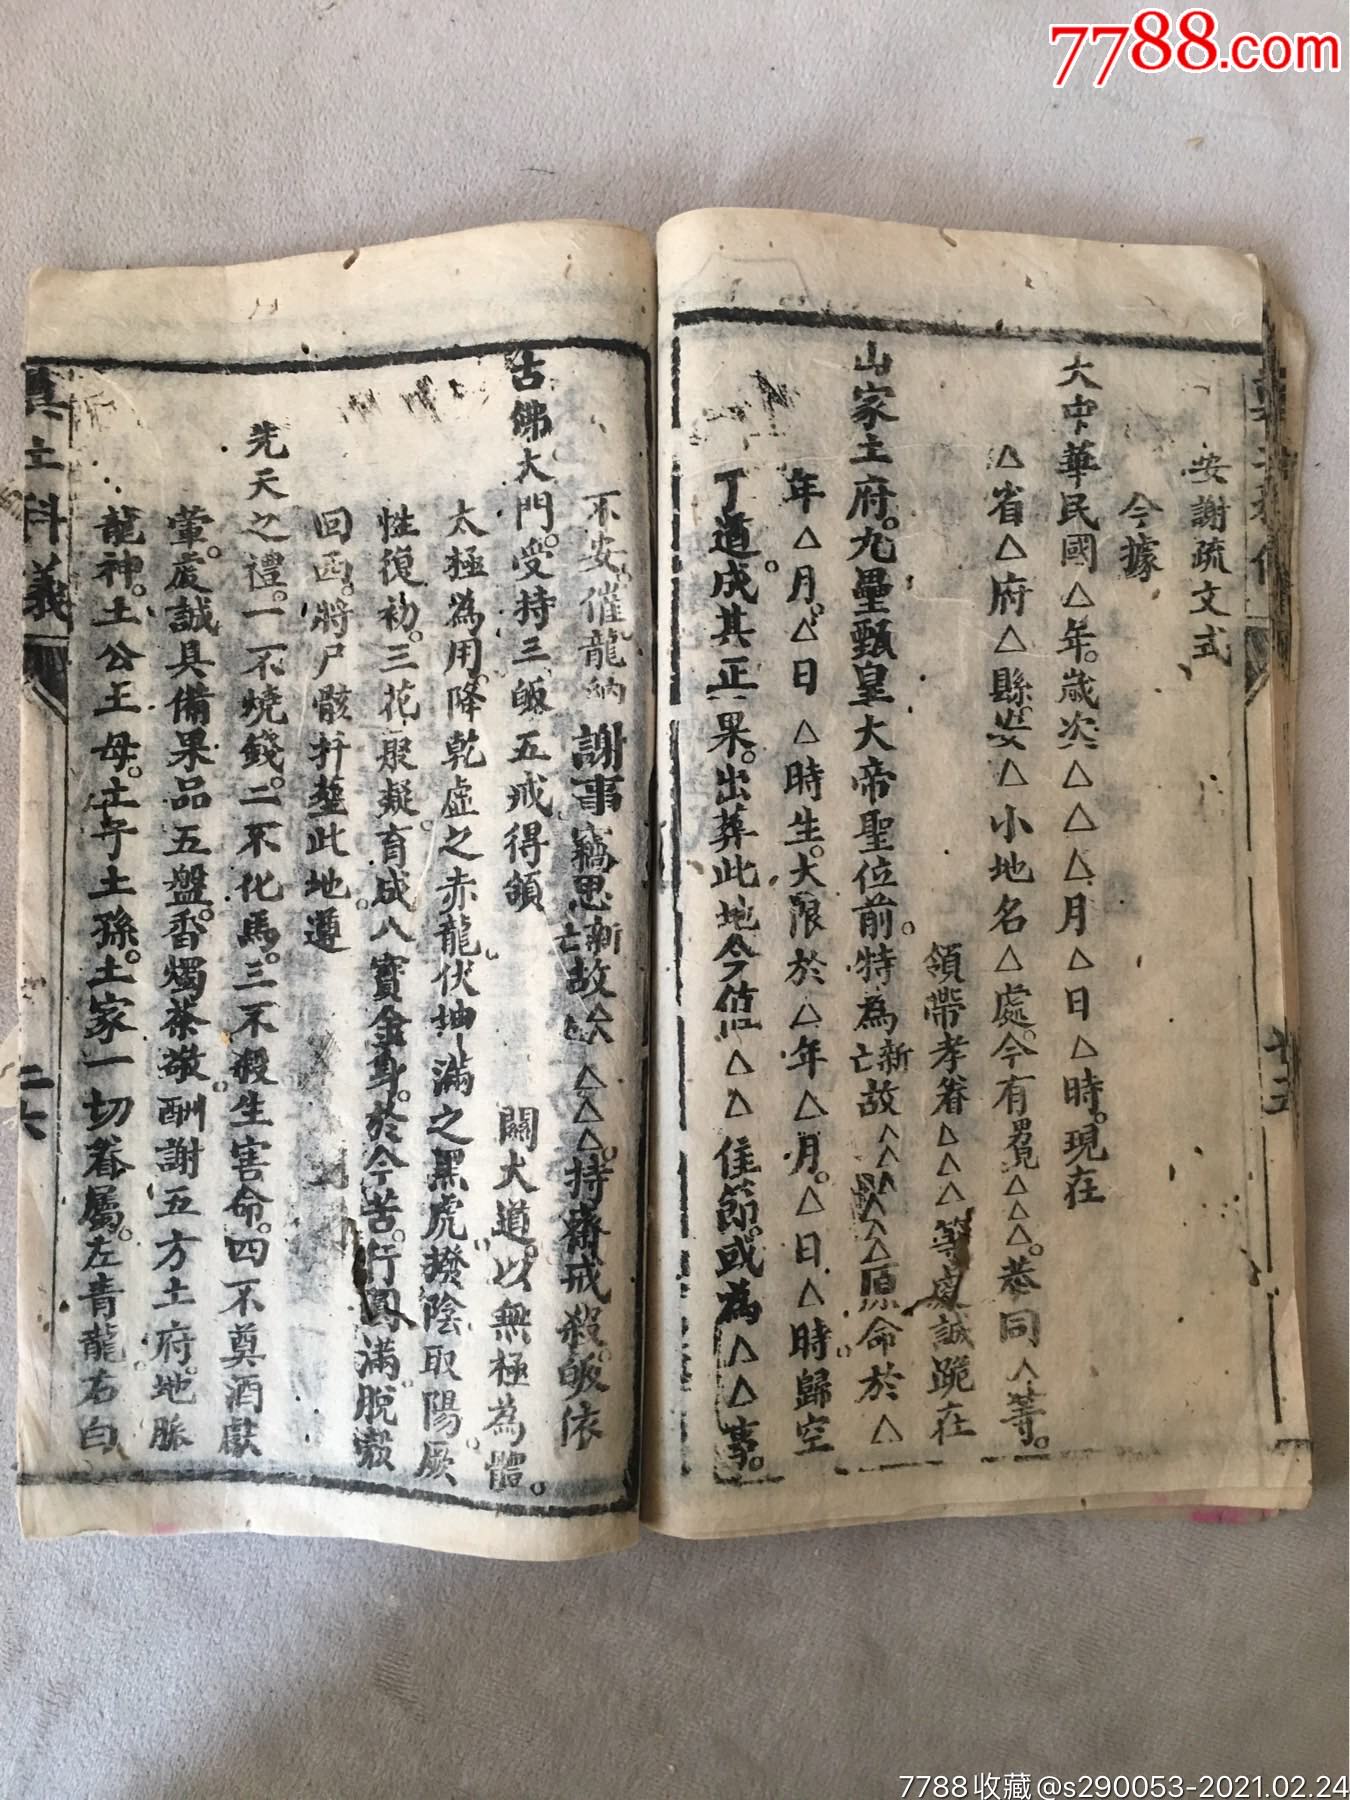 7788.com
安謝疏文式
今據
大中華民國△年。歲次△△△月△日△時。現在
△省△府△縣。△小地名△處。今有△△△。恭同人等。
領帶孝眷△△△等虔誠跪在
山家土府。九壘甄皇大帝聖位前。特為新亡故△△△△△原命於△
年△月。△日△時生。大限於△年△月。△日△時歸空
了道。成其正果。出葬此地今值△△佳節。或為△△事。
不安。催龍納謝事竊思新亡故△△△△。持齋戒殺。皈依
古佛大門。受持三皈五戒得領 關大道。以無極為體。
太極為用。降乾虛之赤龍。伏坤滿之黑虎撥陰取陽。厥
性復初。三花聚凝。育成八寶金身。於今苦。行圓滿。脫殼
回西。將尸骸扦塟此地。遵
先天之禮。一不燒錢。二不化馬。三不殺生害命。四不奠酒獻
葷。虔誠具備果品五盤。香燭茶敬。酬謝五方土府。地脈
龍神。土公王母。土子土孫。土家一切眷屬。左青龍右白
奠土科義
二六
7788收藏@s290053-2021.02.24